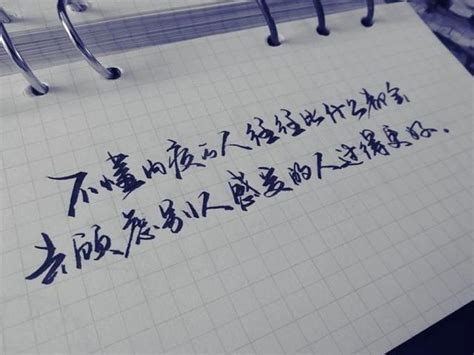 不懂内疚的人往往比什么都会
去顾虑别人感受的人过得更好。